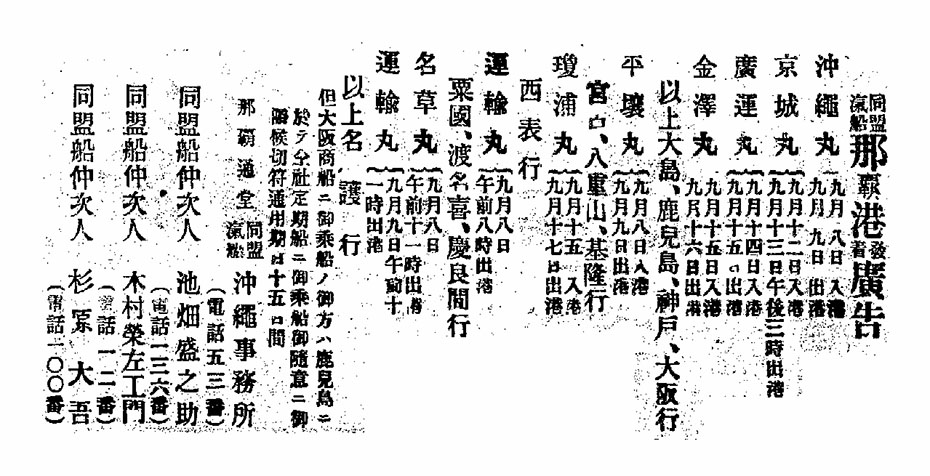 同盟汽船那覇港發着廣告
沖繩丸 九月八日入港
九月九日出港
京城丸 九月十二日入港
九月十三日午後三時出港
廣運丸 九月十四日入港
九月十五日出港
金澤丸 九月十五日入港
九月十六日出港
以上大島、鹿兒島、神戸、大阪行
平壤丸 九月八日入港
九月九日出港
宮古、八重山、基隆行
瓊浦丸 九月十五日入港
九月十七日出港
西表行
運輸丸 九月八日
午前八時出港
粟國、渡名喜、慶良間行
名草丸 九月八日
午前十一時出港
運輸丸 九月九日午前十
一時出港
以上名護行
但大阪商船ニ御乘船ノ御方ハ鹿兒島ニ
於テ仝社定期船ニ御乘船御随意ニ御
候切符通用期日は十五日間
那覇通堂 同盟汽船 沖繩事務所
(電話五三番)
同盟船仲次人 池畑盛之助
(電話一三六番)
同盟船仲次人 木村榮左工門
(電話一二番)
同盟船仲次人 杉原大吾
(電話一〇〇番)